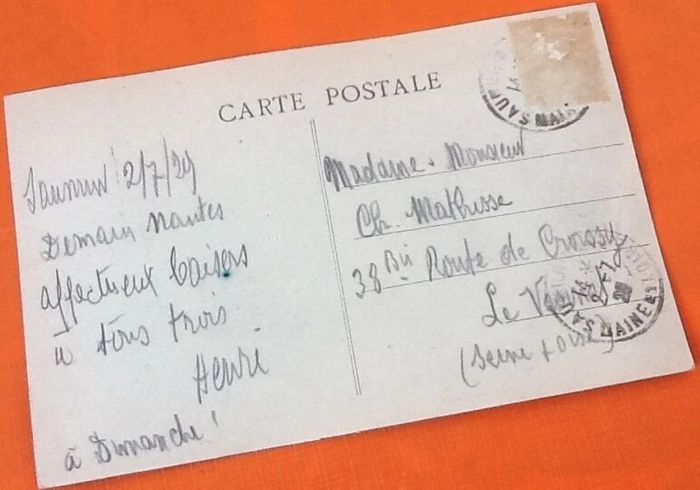 CARTE POSTALE
Saumur 2/7/29
Demain Nantes
affectueux baisers
à tous trois
Henri
à Dimanche!
Madame. Monsieur
Ch. Mathisse
38 Bis Route de Croissy
Le
(Seine & Oise)
SAU
14
SAU MAINE ET
14 *
2-7
29